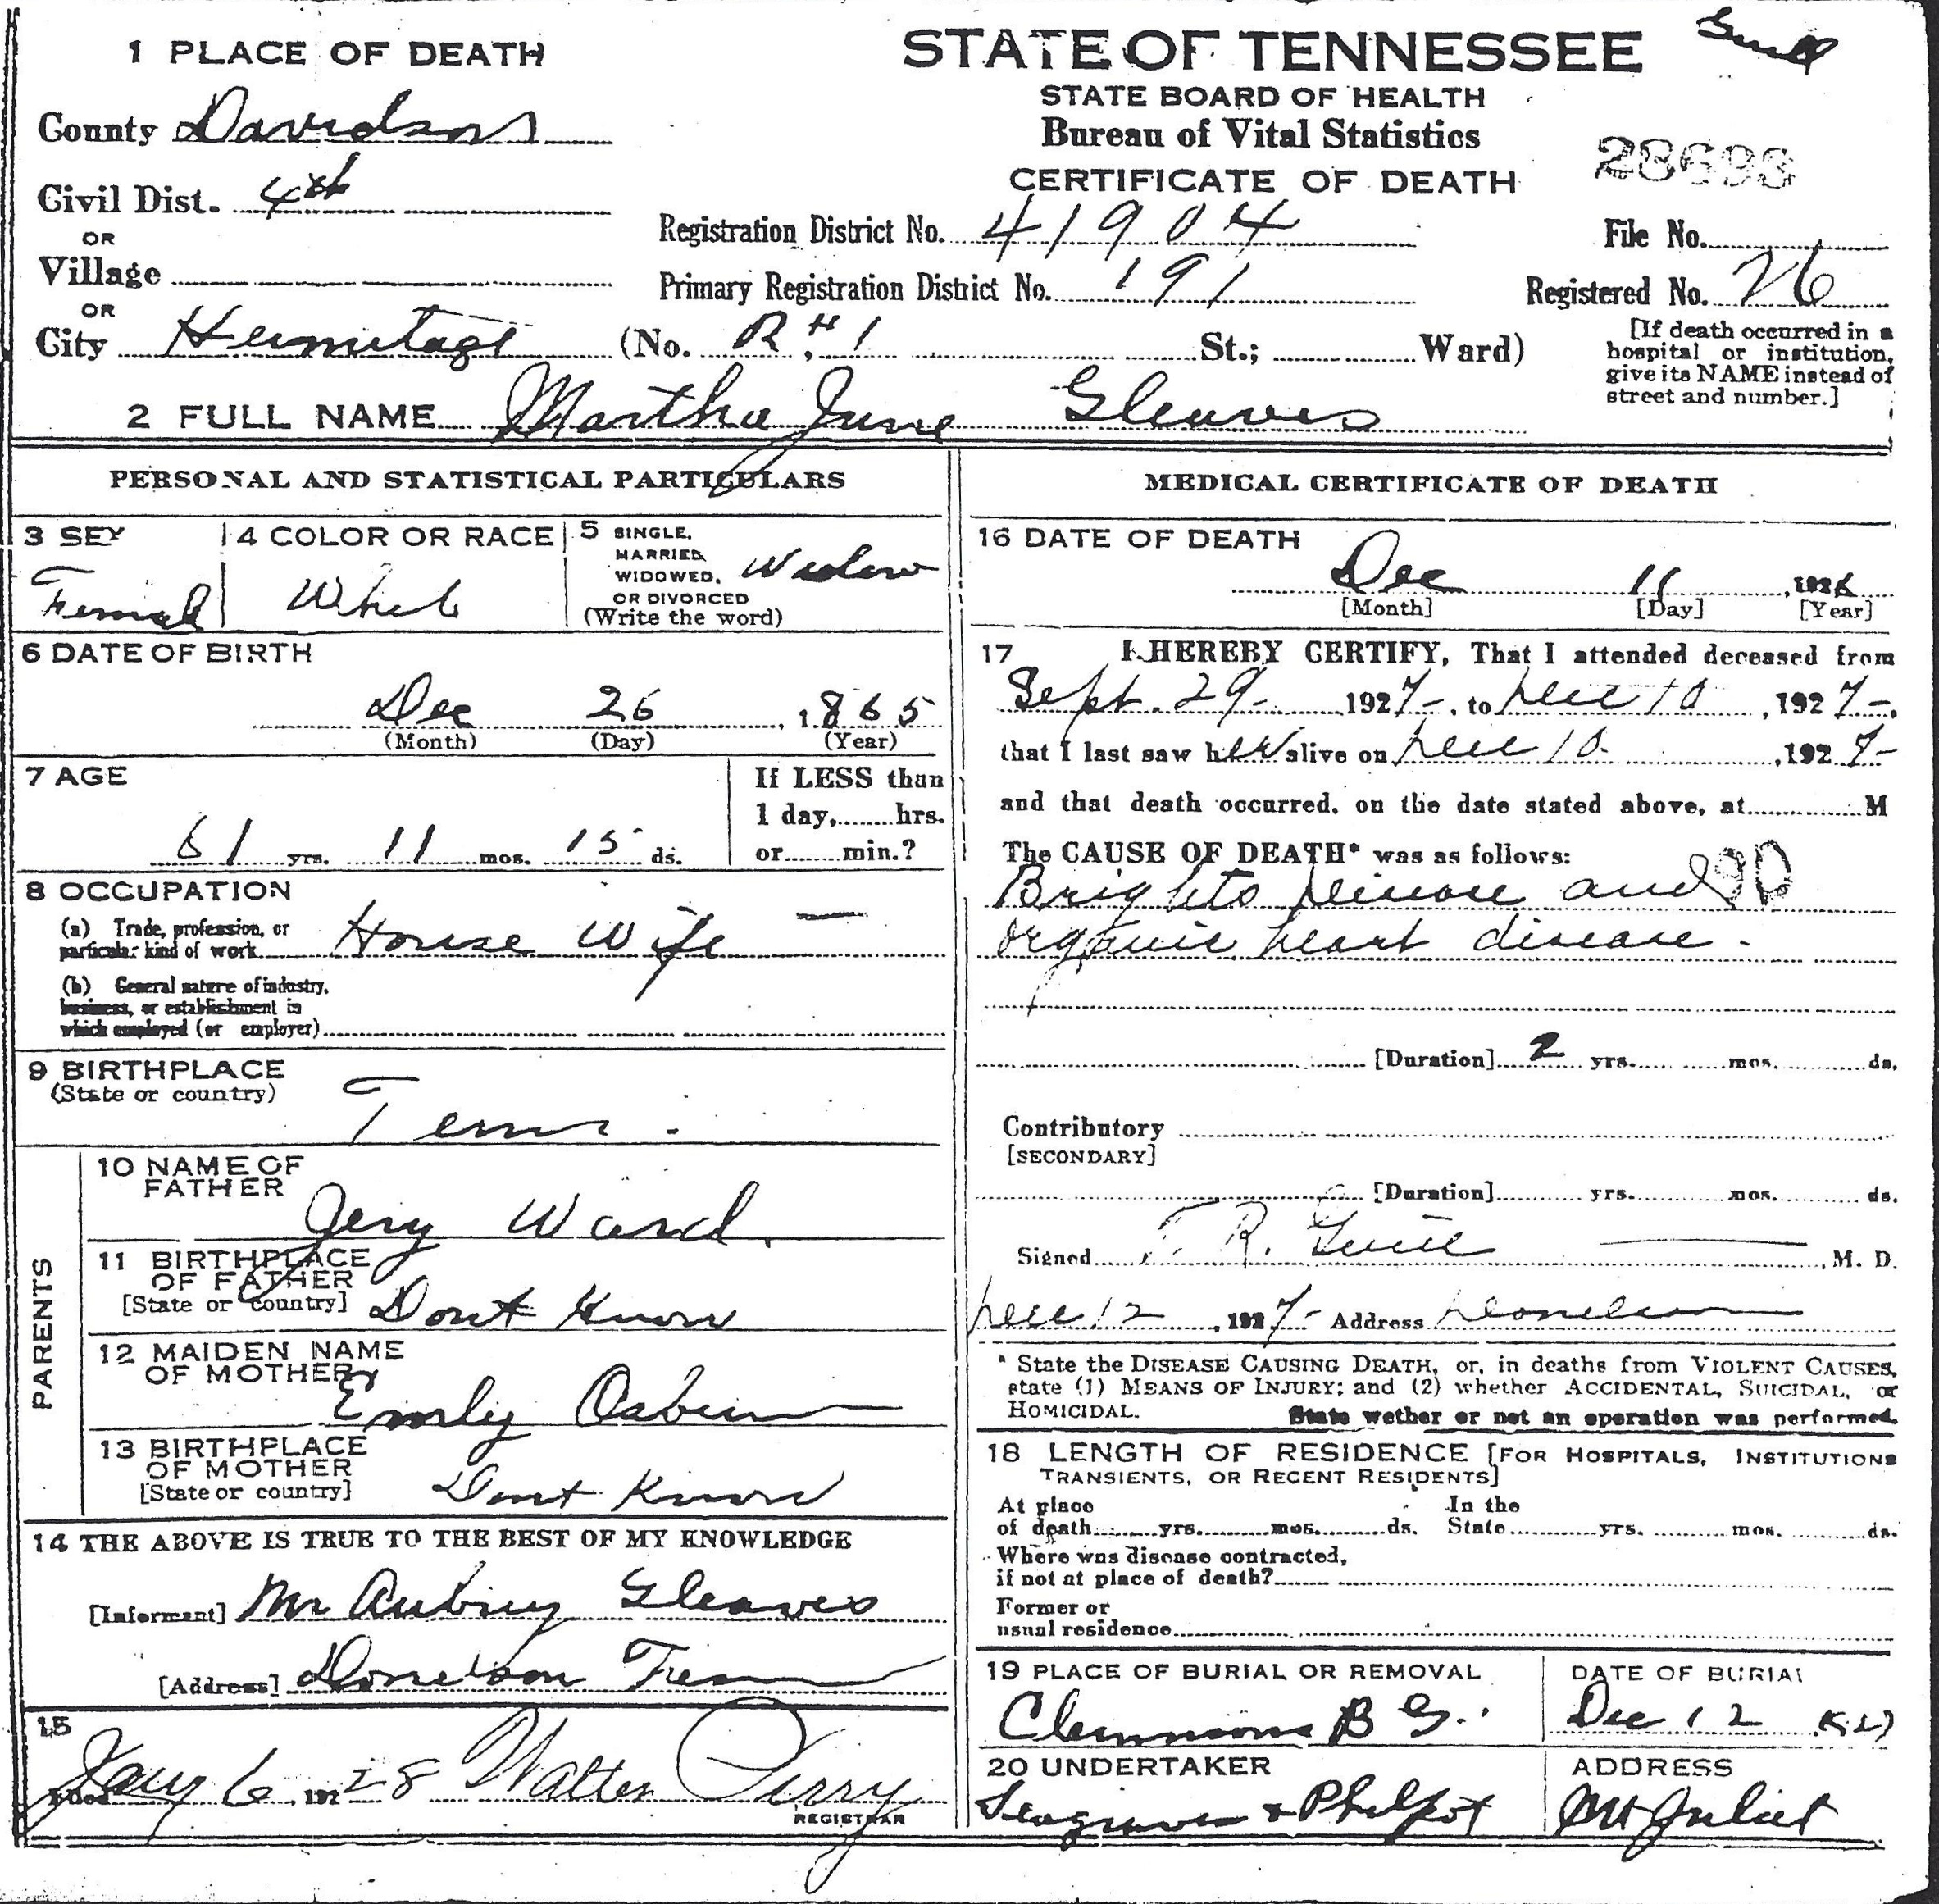 1 PLACE OF DEATH
County Davidson
Civil Dist. 4th
OR
Village
OR
City Hermitage (No. R #1 St.; Ward)
STATE OF TENNESSEE
STATE BOARD OF HEALTH
Bureau of Vital Statistics
CERTIFICATE OF DEATH
28693
Registration District No. 41904
File No.
Primary Registration District No. 191
Registered No. 26
[If death occurred in a
hospital or institution,
give its NAME instead of
street and number.]
2 FULL NAME Martha June Gleaves
PERSONAL AND STATISTICAL PARTICULARS
3 SEX
Femal
4 COLOR OR RACE
Whit
5 SINGLE,
MARRIED
WIDOWED,
OR DIVORCED
(Write the word)
Widow
6 DATE OF BIRTH
Dec 26, 1865
(Month) (Day) (Year)
7 AGE
61 yrs. 11 mos. 15 ds.
If LESS than
1 day, hrs.
or min.?
8 OCCUPATION
(a) Trade, profession, or
particular kind of work House Wife
(b) General nature of industry,
business, or establishment in
which employed (or employer)
9 BIRTHPLACE
(State or country)
Tenn.
PARENTS
10 NAME OF
FATHER
Jery Ward.
11 BIRTHPLACE
OF FATHER
[State or country] Dont Know
12 MAIDEN NAME
OF MOTHER
Emly Osburn
13 BIRTHPLACE
OF MOTHER
[State or country] Dont Know
14 THE ABOVE IS TRUE TO THE BEST OF MY KNOWLEDGE
[Informant] Mr Aubrey Gleaves
[Address] Donelson Tenn
15
Filed Jany 6, 1928 Walter Perry
REGISTRAR
MEDICAL CERTIFICATE OF DEATH
16 DATE OF DEATH
Dec 11
[Month] [Day] [Year]
17 I HEREBY CERTIFY, That I attended deceased from
Sept. 29-, 1927-, to Dec 10, 1927-,
that I last saw her alive on Dec 10, 1927-
and that death occurred, on the date stated above, at M
The CAUSE OF DEATH* was as follows:
Brights Disease and 90
organic heart disease.
[Duration] 2 yrs. mos. ds.
Contributory
[SECONDARY]
[Duration] yrs. mos. ds.
Signed R. , M. D.
Dec 12, 1927- Address Donelson
* State the DISEASE CAUSING DEATH, or, in deaths from VIOLENT CAUSES,
state (1) MEANS OF INJURY; and (2) whether ACCIDENTAL, SUICIDAL, or
HOMICIDAL. State wether or not an operation was performed.
18 LENGTH OF RESIDENCE [FOR HOSPITALS, INSTITUTIONS
TRANSIENTS, OR RECENT RESIDENTS]
At place In the
of death yrs. mos. ds. State yrs. mos. ds.
Where was disease contracted,
if not at place of death?
Former or
usual residence
19 PLACE OF BURIAL OR REMOVAL
Clemmons B G.
DATE OF BURIAL
Dec 12
20 UNDERTAKER
Seagraves & Philpot
ADDRESS
Mt Juliet